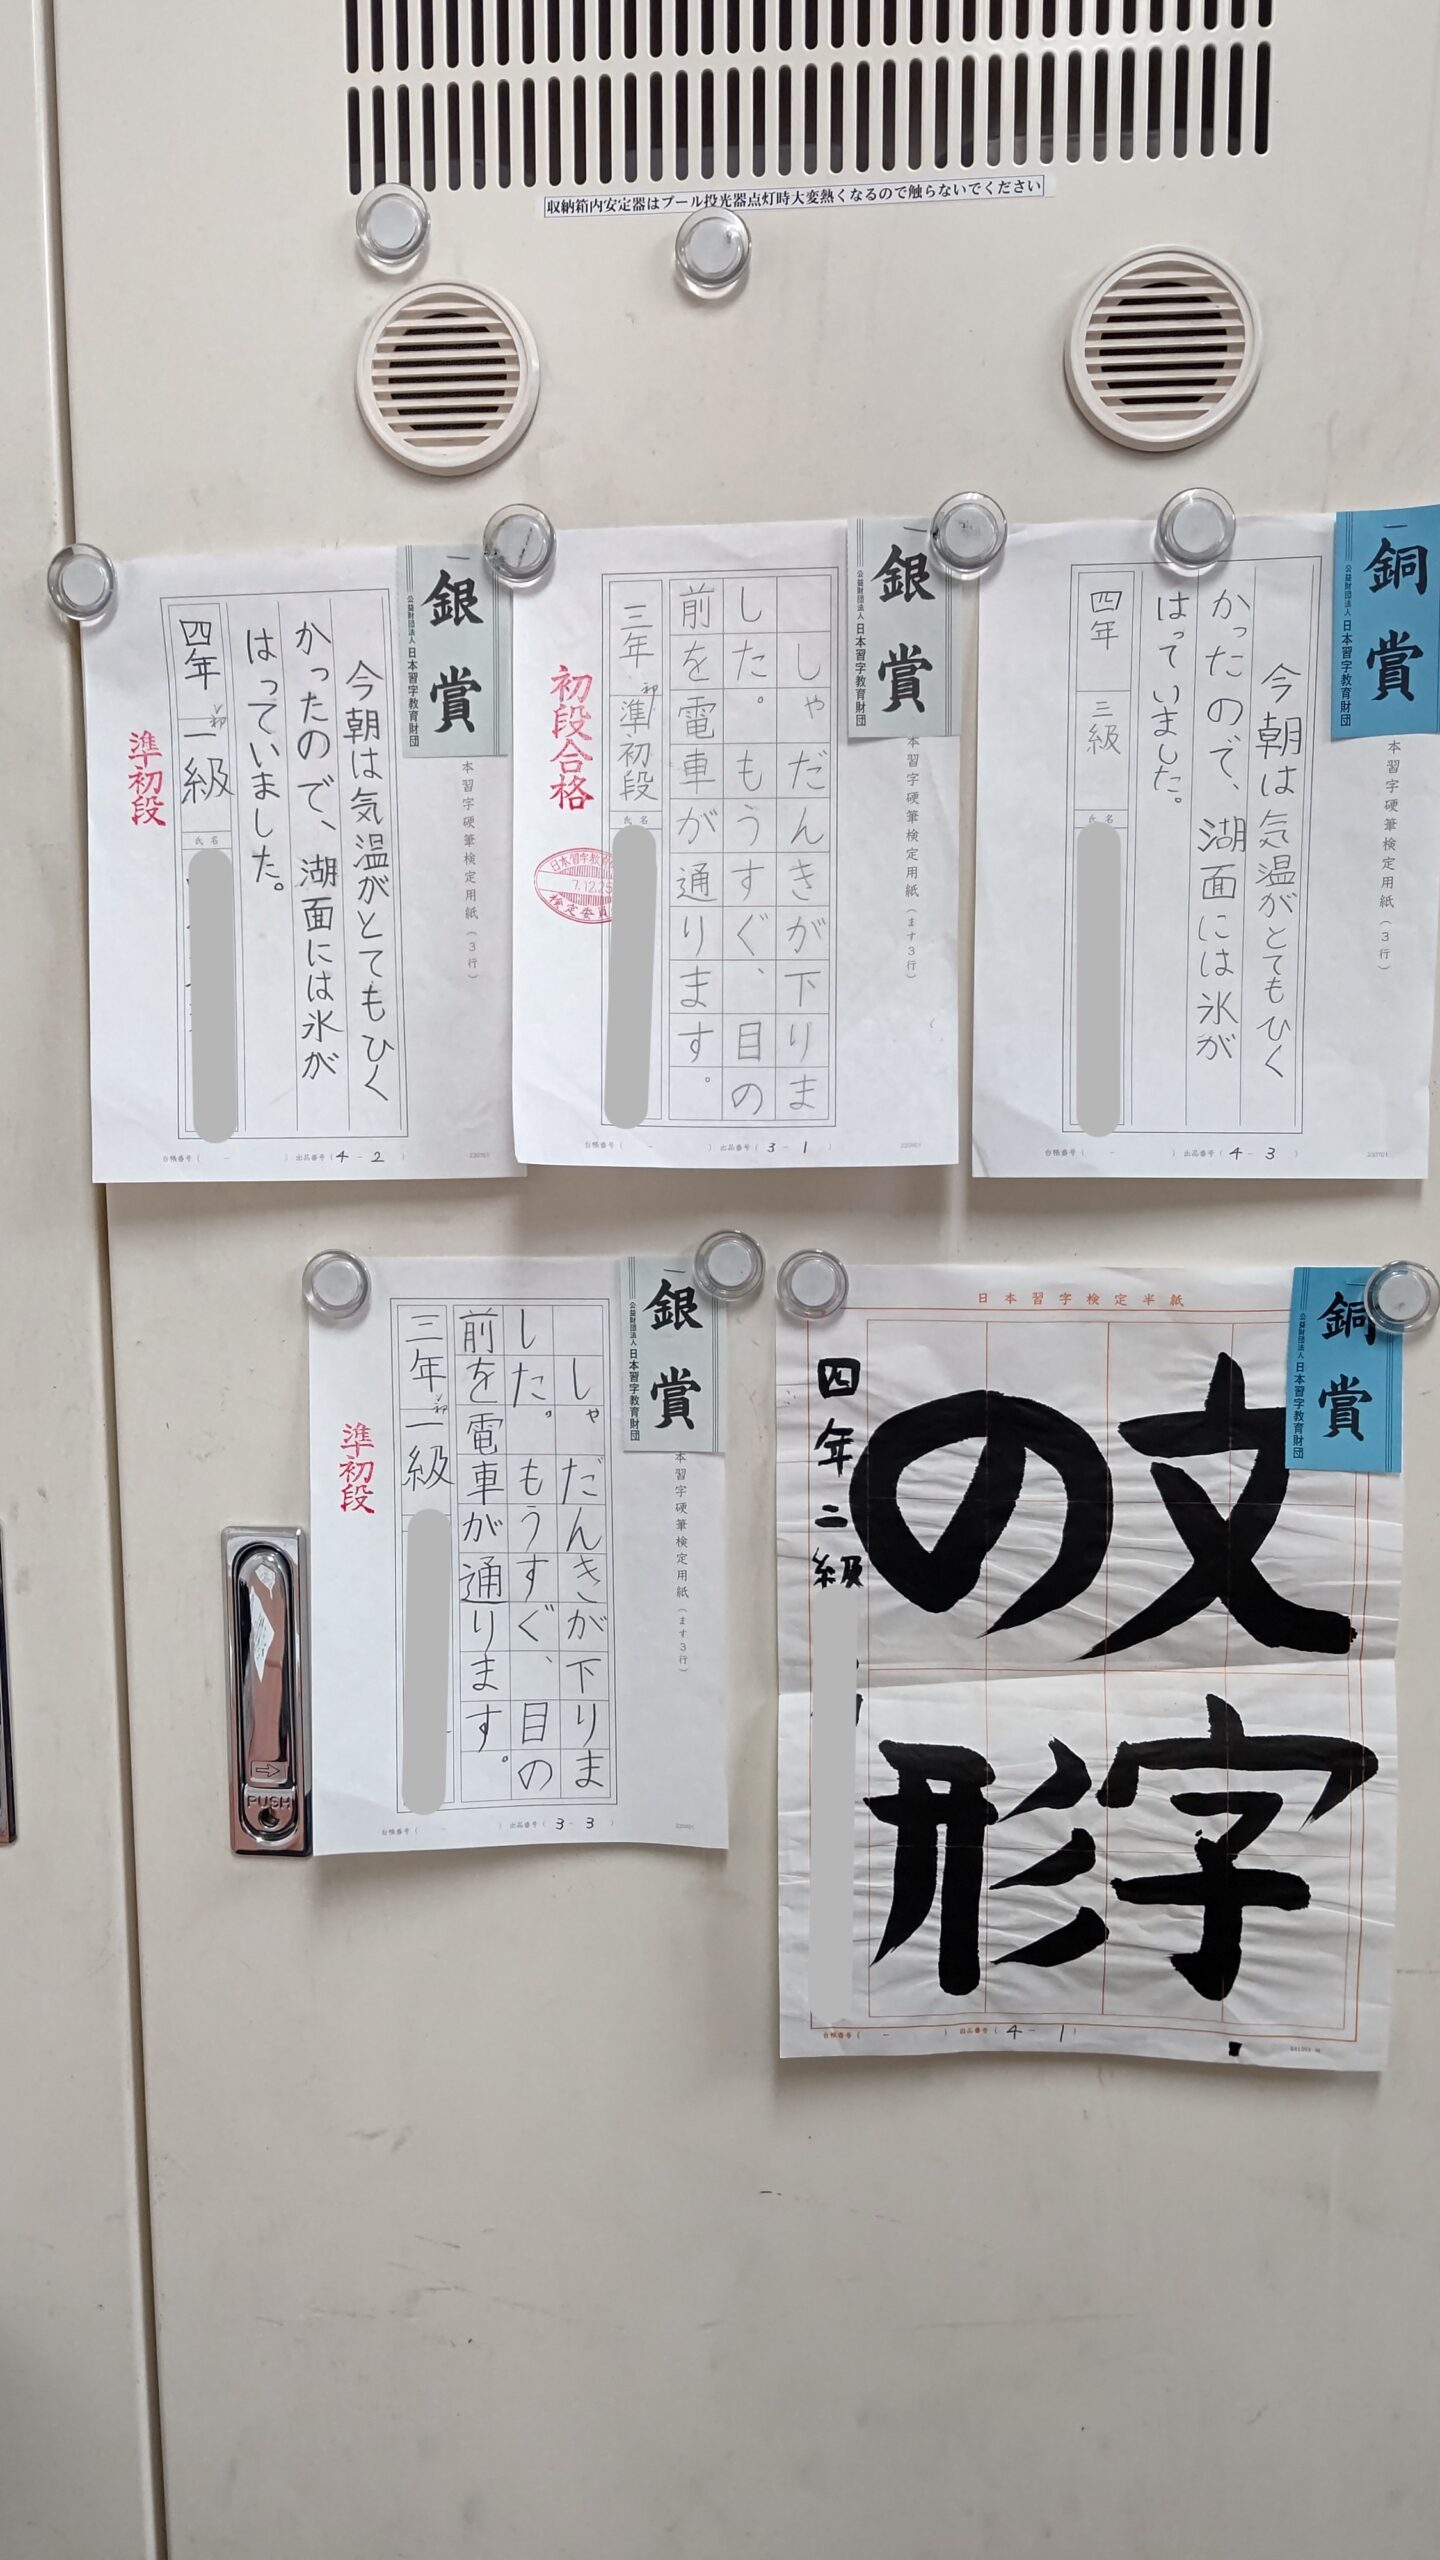 収納箱内安定器はプール投光器点灯時大変熱くなるので触らないでください
銀賞
公益財団法人 日本習字教育財団
本習字硬筆検定用紙(3行)
今朝は気温がとてもひく
かったので、湖面には氷が
はっていました。
四年 初 一級
氏名
準初段
台帳番号( - ) 出品番号(4-2)
230701
銀賞
公益財団法人 日本習字教育財団
本習字硬筆検定用紙(ます3行)
しゃだんきが下りま
した。もうすぐ、目の
前を電車が通ります。
三年 初 準初段
氏名
初段合格
日本習字教育
7.12.25
検定委員
台帳番号( - ) 出品番号(3-1)
220901
銅賞
公益財団法人 日本習字教育財団
本習字硬筆検定用紙(3行)
今朝は気温がとてもひく
かったので、湖面には氷が
はっていました。
四年 三級
氏名
台帳番号( - ) 出品番号(4-3)
230701
銀賞
公益財団法人 日本習字教育財団
本習字硬筆検定用紙(ます3行)
しゃだんきが下りま
した。もうすぐ、目の
前を電車が通ります。
三年 初 一級
準初段
台帳番号( - ) 出品番号(3-3)
PUSH
日本習字検定半紙
銅賞
公益財団法人 日本習字教育財団
文字
の形
四年二級
台帳番号( - ) 出品番号(4-1)